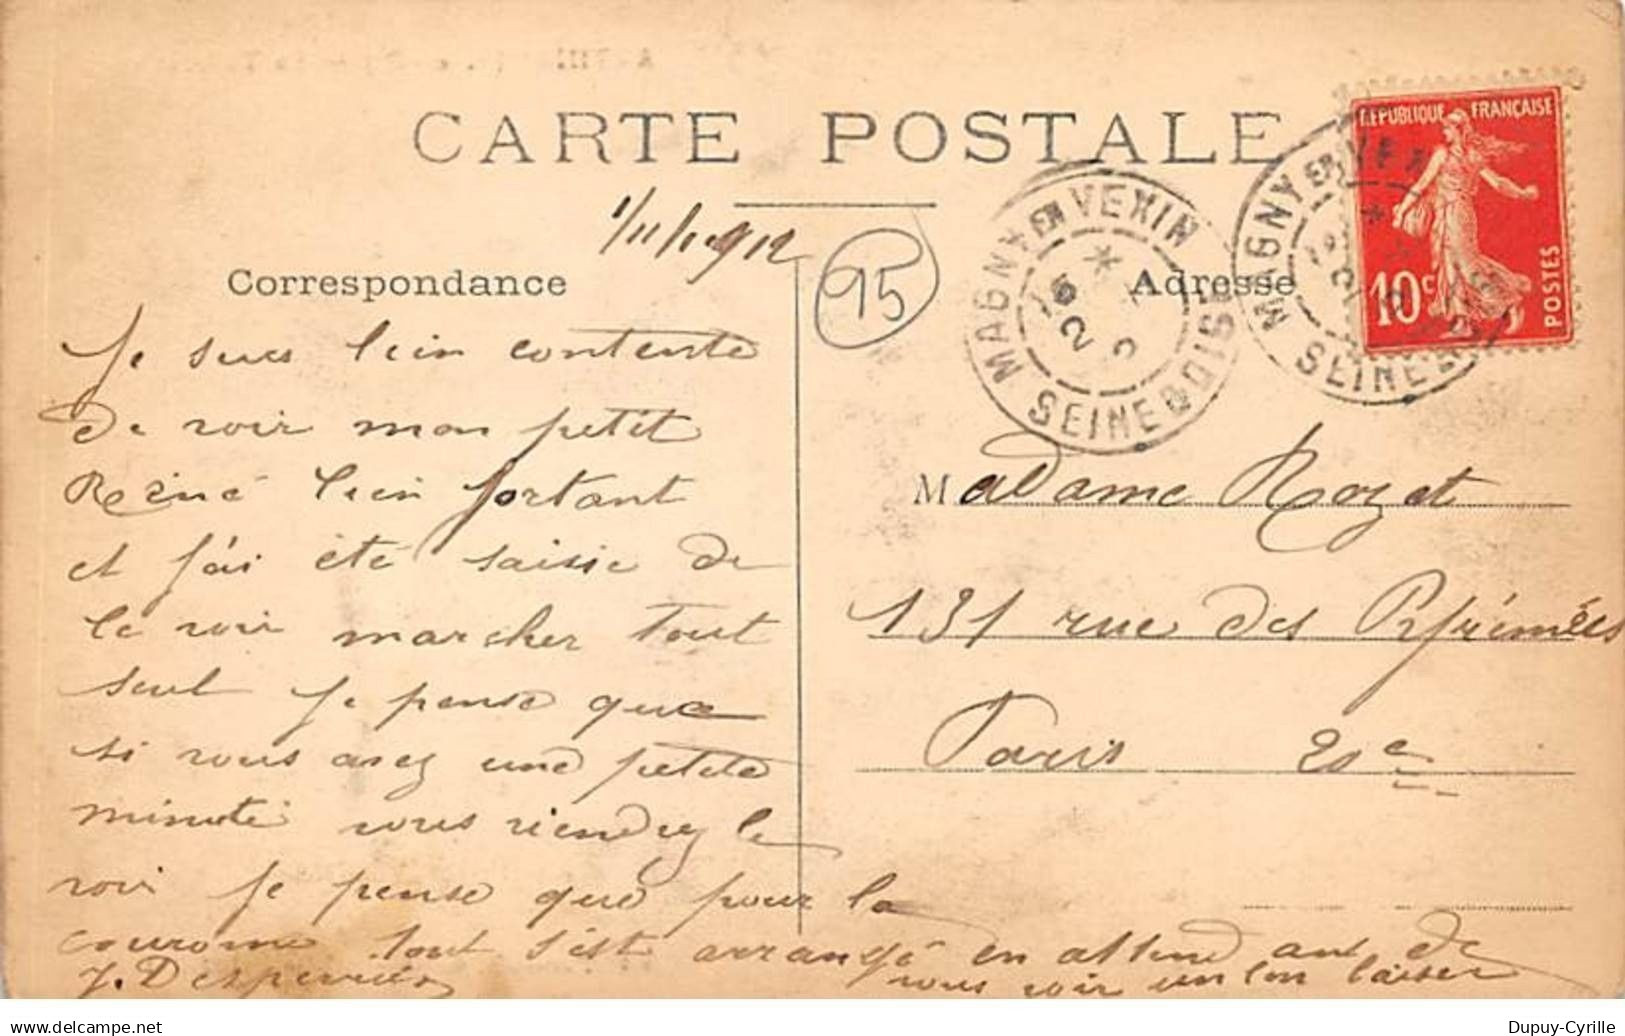 CARTE POSTALE
1/11/1912
Correspondance
Je suis bien contente
de voir mon petit
René bien portant
et j'ai été saisie de
le voir marcher tout
seul je pense que
si vous avez une petite
minute vous viendrez le
voir je pense que pour la
couronne tout s'est arrangé en attendant de
vous voir un bon baiser
J. Desperrié
95
MAGNY EN VEXIN
SEINE & OISE
Adresse
REPUBLIQUE FRANÇAISE
10c
POSTES
MAGNY EN VEX
SEINE
Madame Rozet
131 rue des Pyrénées
Paris 20e
www.delcampe.net
Dupuy-Cyrille